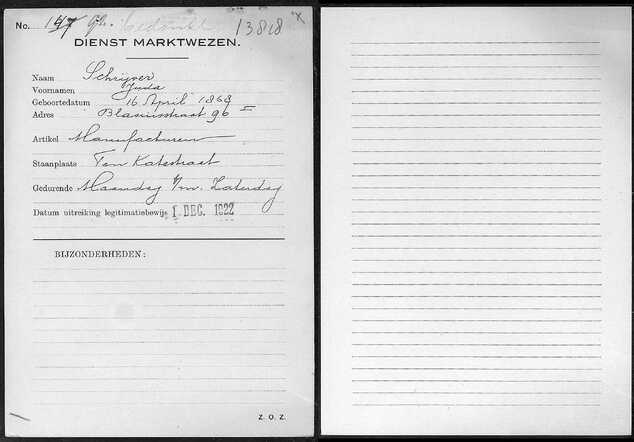 No. 147 gedrukt 13818 x
DIENST MARKTWEZEN.
Naam Schrijver
Voornamen Juda
Geboortedatum 16 April 1868
Adres Blasiusstraat 96 I
Artikel Manufacturen
Staanplaats Ten Katestraat
Gedurende Maandag t/m. Zaterdag
Datum uitreiking legitimatiebewijs 1 DEC. 1922
BIJZONDERHEDEN:
Z. O. Z.